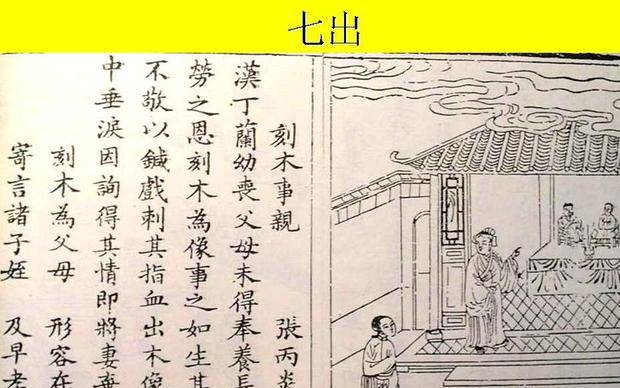 七出
刻木事親 張丙炎
漢丁蘭幼喪父母未得奉養長
勞之恩刻木為像事之如生其
不敬以鍼戲刺其指血出木像
中垂淚因詢得其情即將妻棄
刻木為父母 形容在
寄言諸子姪 及早孝